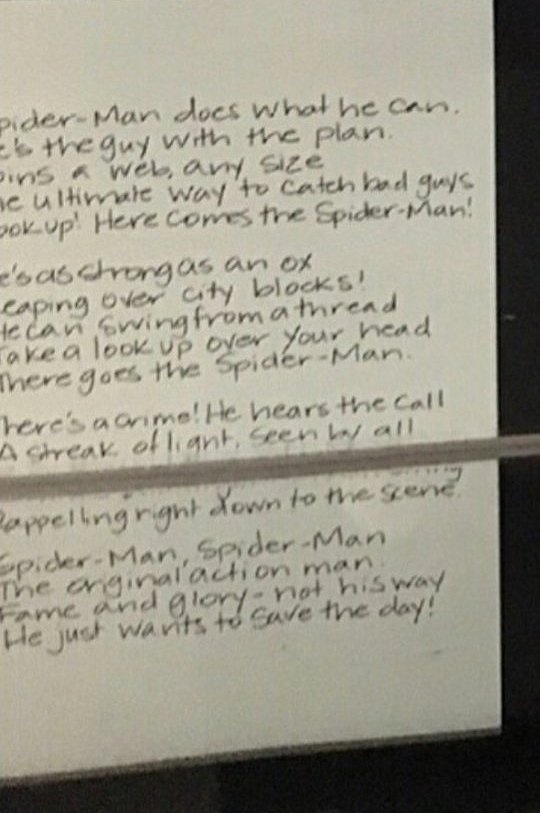 pider-Man does what he can.
e's the guy with the plan.
pins a web, any size
he ultimate way to catch bad guys
ook up! Here comes the Spider-Man!
e's as strong as an ox
eaping over city blocks!
He can swing from a thread
Take a look up over your head
There goes the Spider-Man.
There's a crime! He hears the call
A streak of light, seen by all
Rappelling right down to the scene.
Spider-Man, Spider-Man
The original action man.
Fame and glory - not his way
He just wants to save the day!